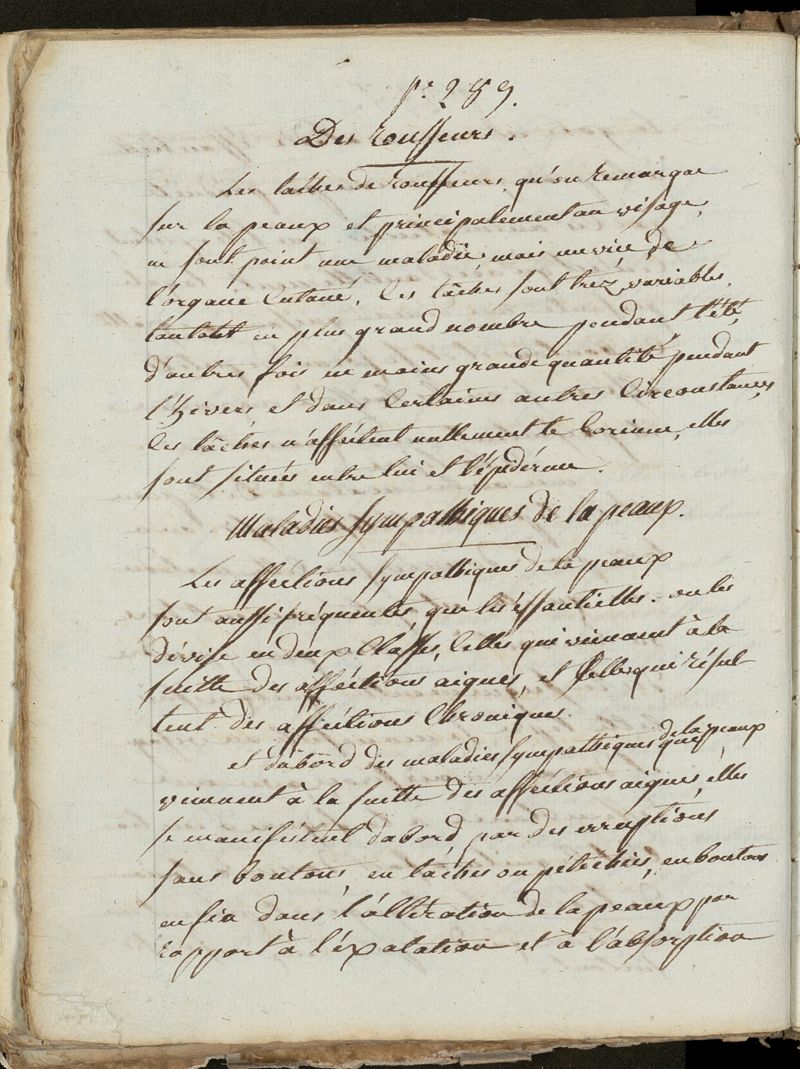 pe 289.
Des rousseurs.
Les tâches de rousseurs, qu'on remarque
sur la peaux et principalement au visage,
ne sont point une maladie, mais un vice de
l'organe Cutané. Ces tâches sont trez variables,
tantotst en plus grand nombre pendant l'été,
d'autres fois en moins grande quantité pendant
l'hivers, et dans Certaines autres Circonstances,
Ces tâches n'affectent nullement le Corium, elles
sont situées entre lui et l'épiderme.
Maladies Sympathiques de la peaux.
Les affections Sympathiques de la peaux
sont aussi fréquentes, que les éssentielles. on les
dévise en deux Classes, Celles qui viennent à la
suitte des afféctions aigues, et Celles qui résul
tent des affections Chroniques.
et d'abord des maladies Sympathiques de la peaux
que viennent à la suitte des afféctions aigues, elles
se manifestent d'abord par des erruptions
sans boutons, en taches ou pétechies, en boutons
enfin dans l'alltération de la peaux par
rapport à l'éxalation et à l'absorption